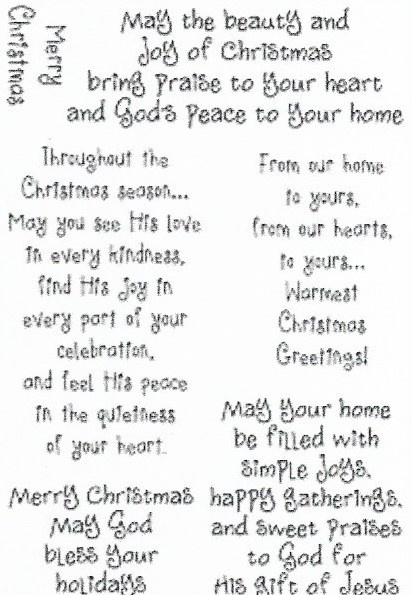 Merry
Christmas
May the beauty and
Joy of Christmas
bring praise to your heart
and God's peace to your home
Throughout the
Christmas season...
May you see His love
in every kindness,
find His joy in
every part of your
celebration,
and feel His peace
in the quietness
of your heart.
From our home
to yours,
from our hearts,
to yours...
Warmest
Christmas
Greetings!
May your home
be filled with
simple joys,
happy gatherings,
and sweet praises
to God for
His gift of Jesus
Merry Christmas
May God
bless your
holidays